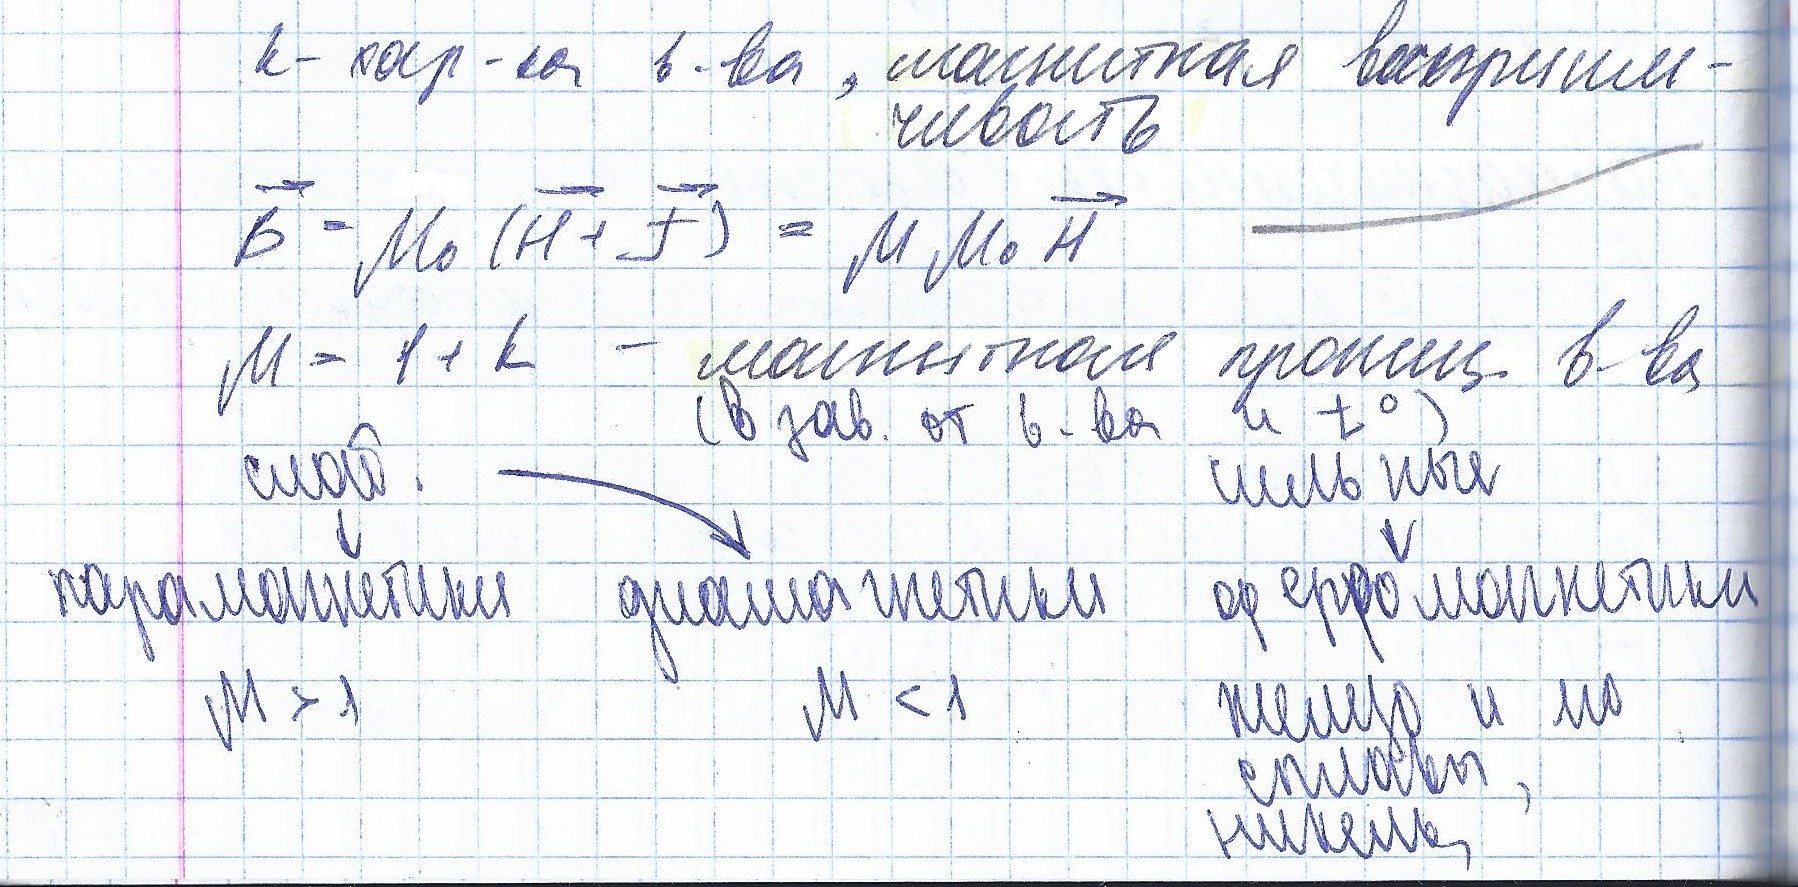 k - хар-ка в-ва, магнитная восприим-
чивость
B⃗ = μ₀ (H⃗ + J⃗) = μ μ₀ H⃗
μ = 1 + k - магнитная прониц. в-ва
(в зав. от в-ва и t°)
слаб. сильные
парамагнетики диамагнетики ферромагнетики
μ > 1 μ < 1 железо и
сплавы,
никель,